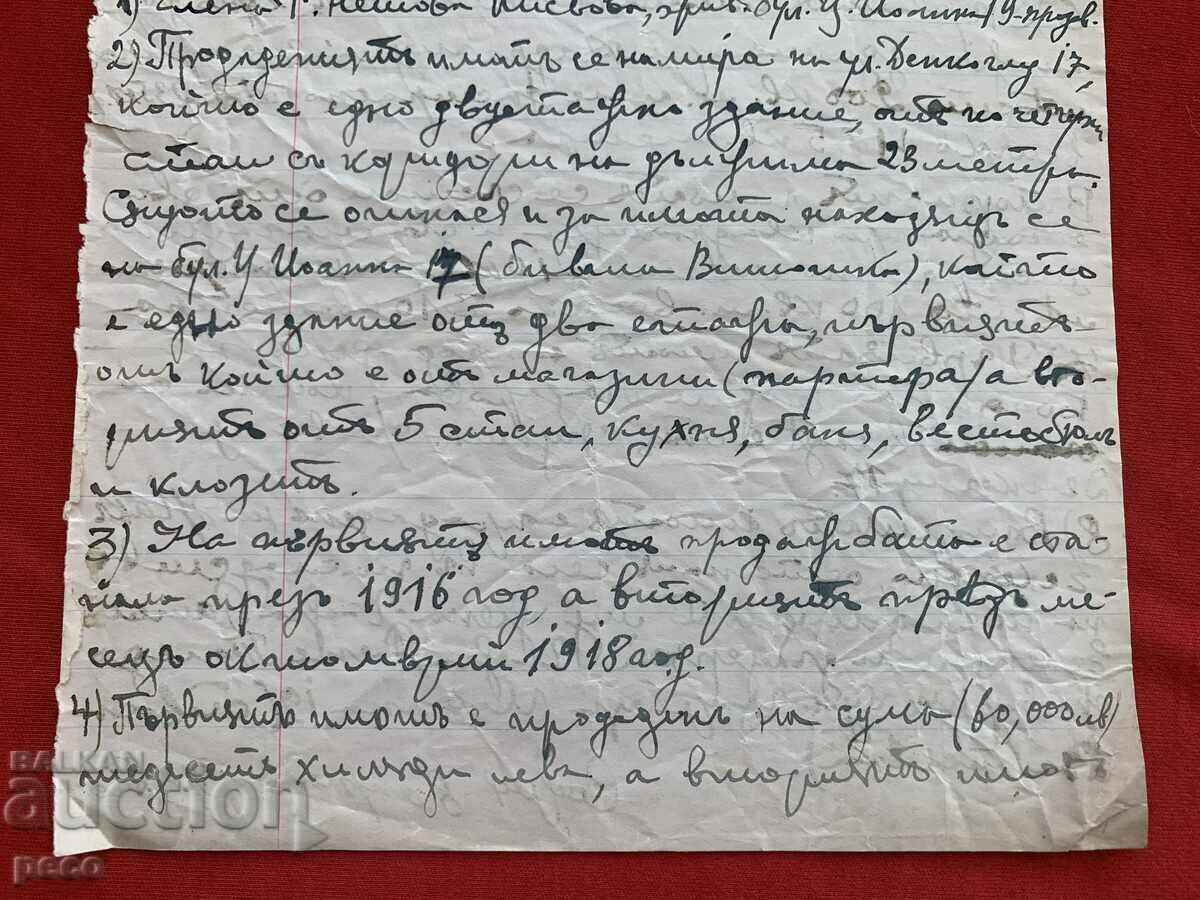 1) Елена Г. Нешова Кисьова, жив. бул. Ц. Иоанна 19-продав.
2) Продадениятъ имотъ се намира на ул. Денкоглу 17,
който е едно двуетажно здание, отъ по четири
стаи съ коридори на дължина 23 метра.
Същото се отнася и за имота находящъ се
на бул. Ц. Иоанна 17 (бивша Витошка), който
е едно здание отъ два етажа, първиятъ
отъ който е отъ магазини (партера) а вто-
риятъ отъ 5 стаи, кухня, баня, вестобюлъ
и клозетъ.
3) На първиятъ имотъ продажбата е ста-
нала презъ 1916 год, а вториятъ презъ ме-
сецъ октомврий 1918 год.
4) Първиятъ имотъ е продаденъ на сума (60,000 лв)
шедесетъ хиляди лева, а вториятъ имотъ
BALKAN
auction
peco